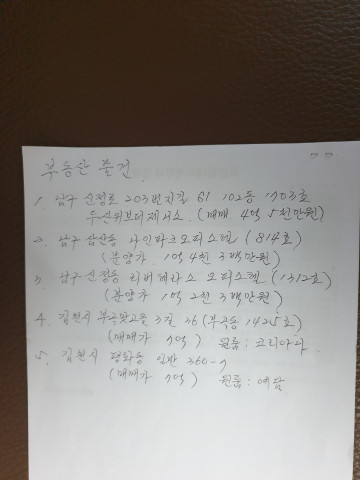 부동산 물건
1. 남구 신정로 203번지길 61 102동 1703호
두산위브더제니스. (매매 4억 5천만원)
2. 남구 삼산동 나인파크오피스텔 (814호)
(분양가 1억 4천 3백만원)
3. 남구 신정동 리버테라스 오피스텔 (1312호)
(분양가 1억 2천 3백만원)
4. 김천시 부곡맛고을 3길 36 (부곡동 1425호)
(매매가 7억) 원룸: 코리아나
5. 김천시 평화동 일반 360-7
(매매가 7억) 원룸: 예담